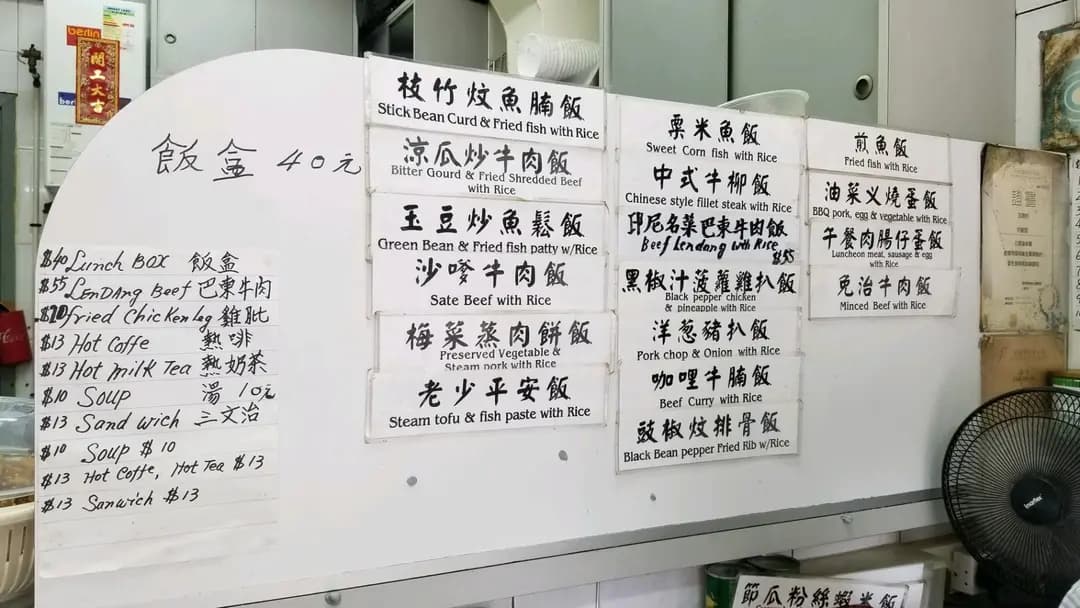 berlin
開工大吉
飯盒 40元
$40 Lunch Box 飯盒
$55 LenDAng Beef 巴東牛肉
Fried Chicken Leg 雞肶
$13 Hot Coffe 熱啡
$13 Hot milk Tea 熱奶茶
$10 Soup 湯 10元
$13 Sand wich 三文治
$10 Soup $10
$13 Hot Coffe, Hot Tea $13
$13 Sanwich $13
枝竹炆魚腩飯
Stick Bean Curd & Fried fish with Rice
涼瓜炒牛肉飯
Bitter Gourd & Fried Shredded Beef
with Rice
玉豆炒魚鬆飯
Green Bean & Fried fish patty w/Rice
沙嗲牛肉飯
Sate Beef with Rice
梅菜蒸肉餅飯
Preserved Vegetable &
Steam pork with Rice
老少平安飯
Steam tofu & fish paste with Rice
粟米魚飯
Sweet Corn fish with Rice
中式牛柳飯
Chinese style fillet steak with Rice
印尼名菜巴東牛肉飯
Beef Lendang with Rice
$55
黑椒汁菠蘿雞扒飯
Black pepper chicken
& pineapple with Rice
洋葱豬扒飯
Pork chop & Onion with Rice
咖哩牛腩飯
Beef Curry with Rice
豉椒炆排骨飯
Black Bean pepper Fried Rib w/Rice
煎魚飯
Fried fish with Rice
油菜义燒蛋飯
BBQ pork, egg & vegetable with Rice
午餐肉腸仔蛋飯
Luncheon meat, sausage & egg
with Rice
免治牛肉飯
Minced Beef with Rice
節瓜粉絲蝦米飯